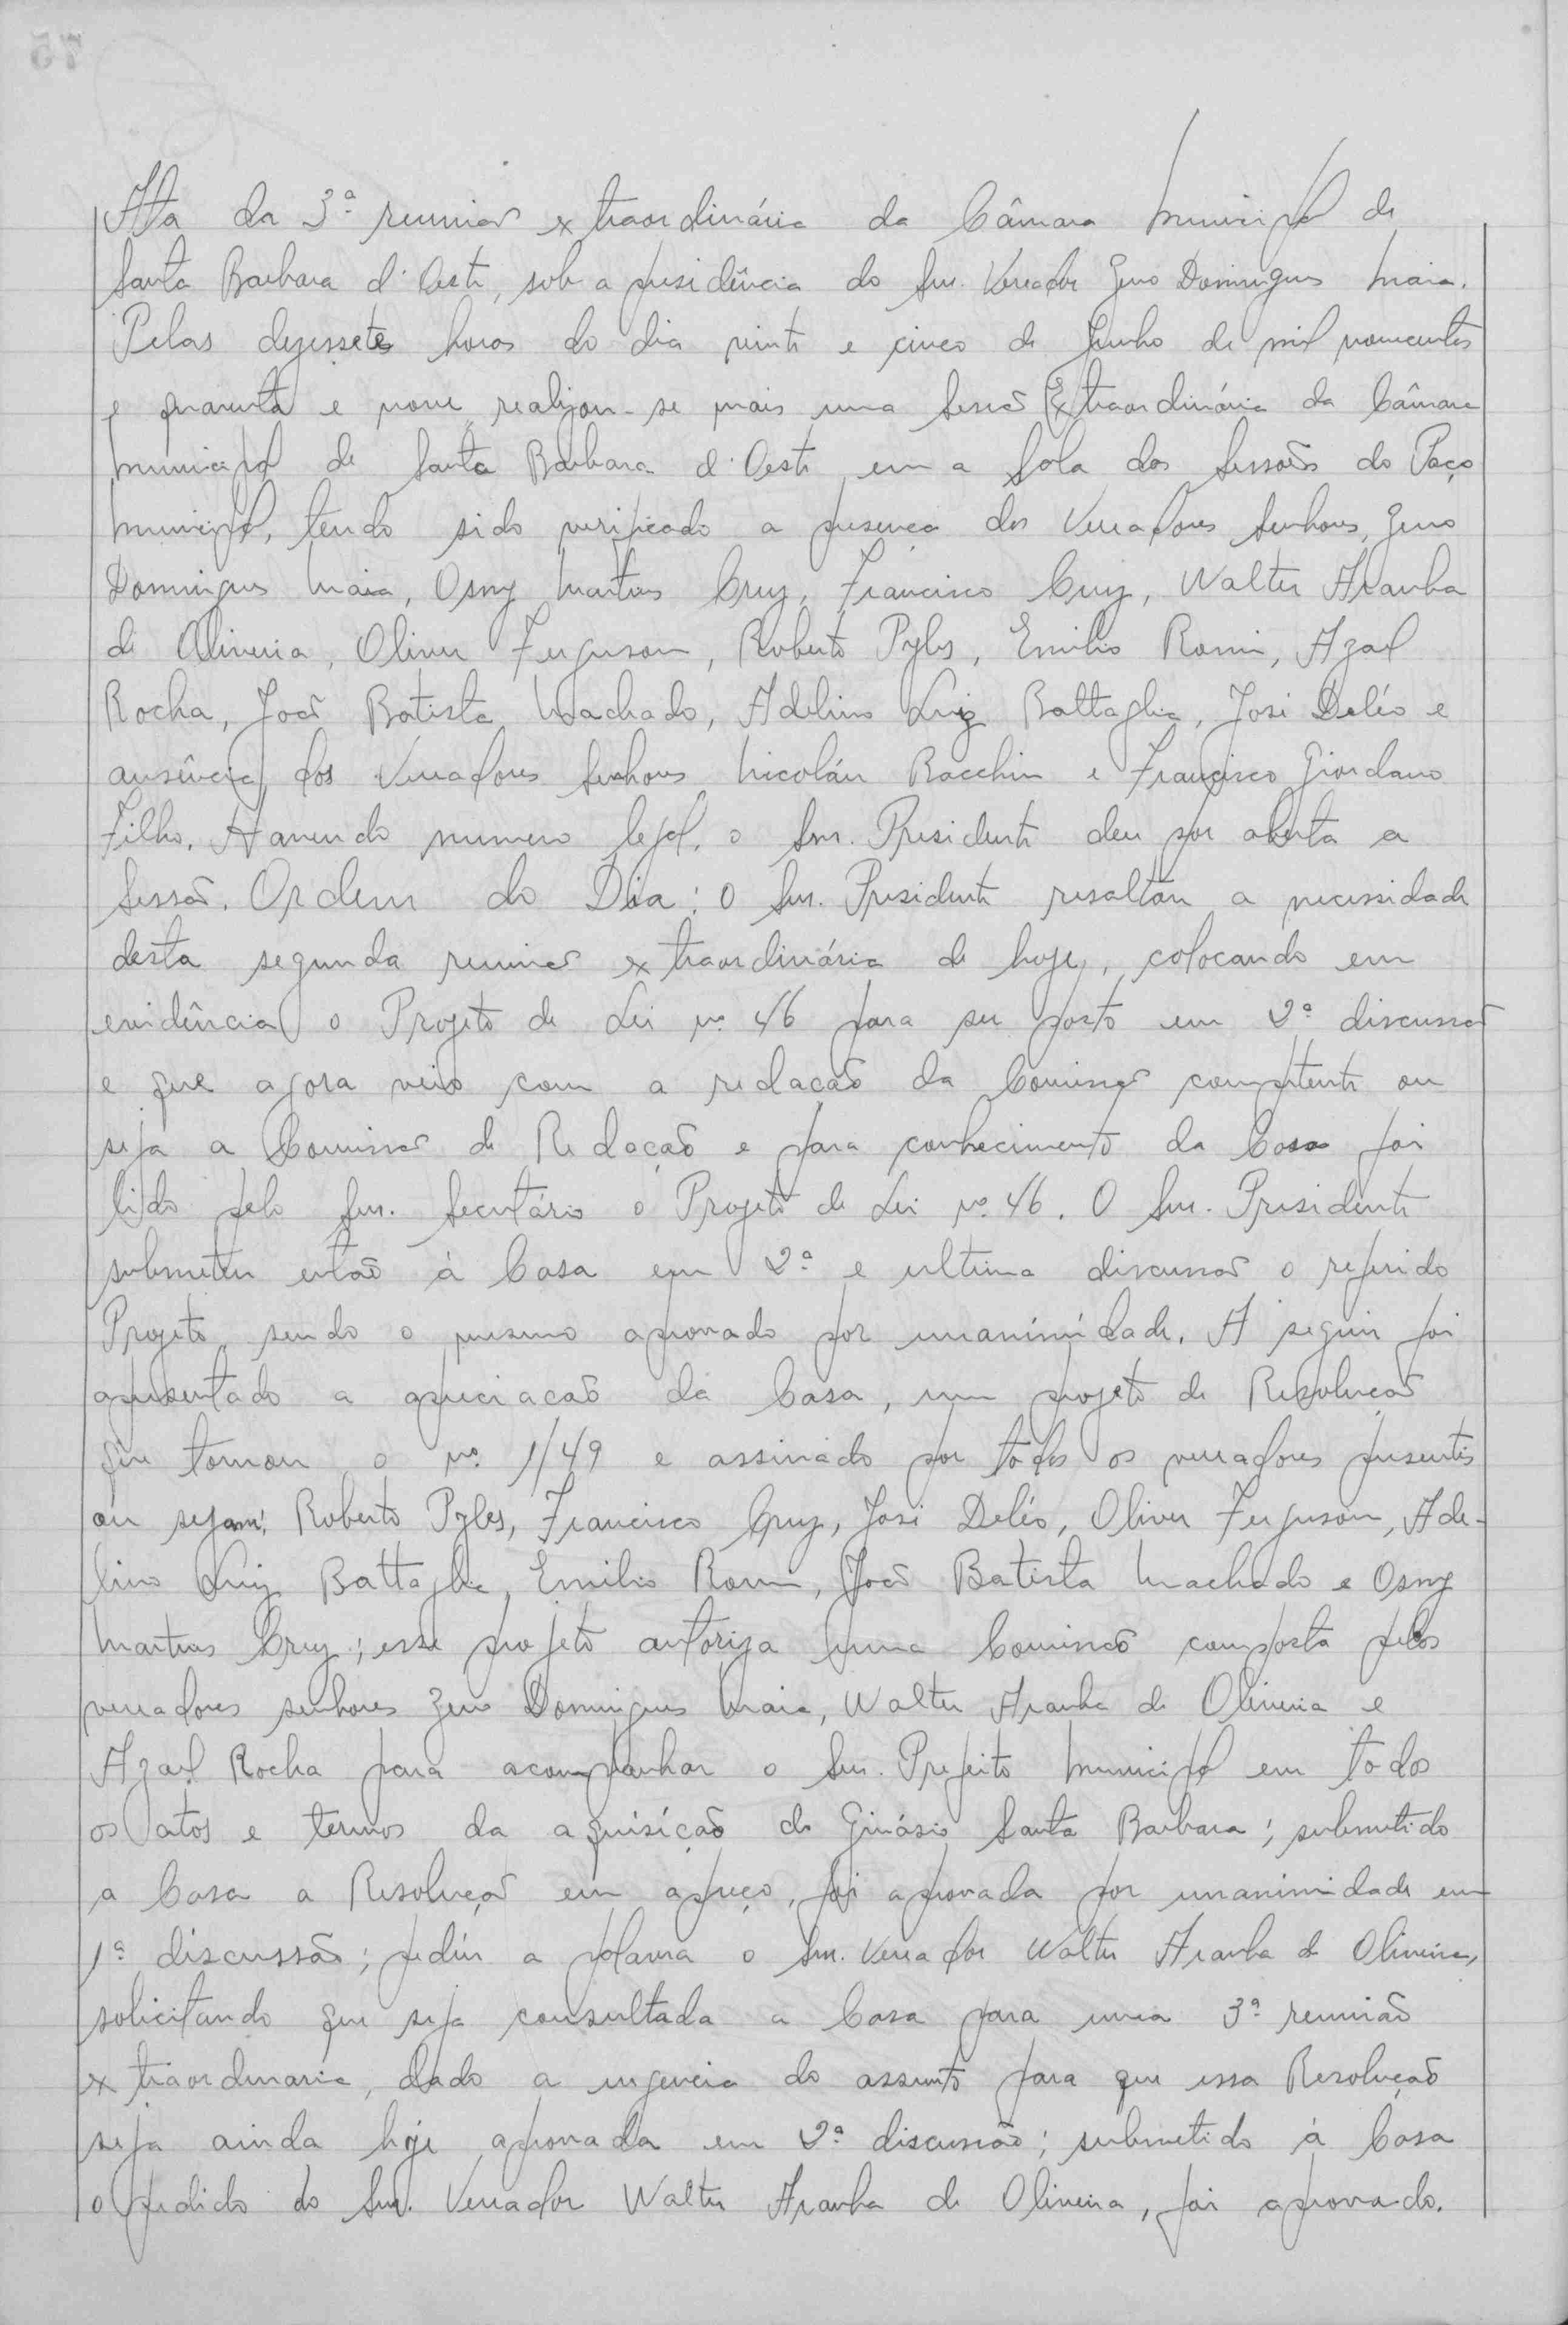 75
Ata da 3ª reunião extraordinária da Câmara Municipal de
Santa Barbara d'Oeste, sob a presidência do Snr. Vereador Zeno Domingues Maia.
Pelas dezessete horas do dia vinte e cinco de Junho de mil novecentos
e quarenta e nove, realizou-se mais uma Sessão Extraordinária da Câmara
Municipal de Santa Barbara d'Oeste em a Sala das Sessões do Paço
Municipal, tendo sido verificado a presença dos Vereadores Senhores, Zeno
Domingues Maia, Osny Martins Cruz, Francisco Cruz, Walter Aranha
de Oliveira, Oliver Ferguson, Roberto Pyles, Emilio Romi, Azael
Rocha, João Batista Machado, Adelino Luiz Battaglia, José Deléo e
ausência dos Vereadores Senhores Nicoláu Bacchin e Francisco Giordano
Filho. Havendo numero legal, o Snr. Presidente deu por aberta a
Sessão. Ordem do Dia: O Snr. Presidente resaltou a necessidade
desta segunda reunião extraordinária de hoje, colocando em
evidência o Projeto de Lei nº 46 para ser posto em 2ª discussão
e que agora veio com a redacão da Comissão competente ou
seja a Comissão de Redação e para conhecimento da Casa foi
lido pelo Snr. Secretário o Projeto de Lei nº 46. O Snr. Presidente
submeteu então à Casa em 2ª e ultima discussão o referido
Projeto, sendo o mesmo aprovado por unanimidade. A seguir foi
apresentado a apreciacão da Casa, um projeto de Resolução
que tomou o nº 1/49 e assinado por todos os vereadores presentes
ou sejam: Roberto Pyles, Francisco Cruz, José Deléo, Oliver Ferguson, Ade-
lino Luiz Battaglia, Emilio Romi, João Batista Machado e Osny
Martins Cruz; esse projeto autoriza uma Comissão composta pelos
vereadores senhores Zeno Domingues Maia, Walter Aranha de Oliveira e
Azael Rocha para acompanhar o Snr. Prefeito Municipal em todos
os atos e termos da aquisição do Ginásio Santa Barbara; submetido
a Casa a Resolução em apreço, foi aprovada por unanimidade em
1ª discussão; pediu a palavra o Snr. Vereador Walter Aranha de Oliveira,
solicitando que seja consultada a Casa para uma 3ª reunião
extraordinaria, dado a urgencia do assunto para que essa Resolução
seja ainda hoje aprovada em 2ª discussão; submetido à Casa
o pedido do Snr. Vereador Walter Aranha de Oliveira, foi aprovado.